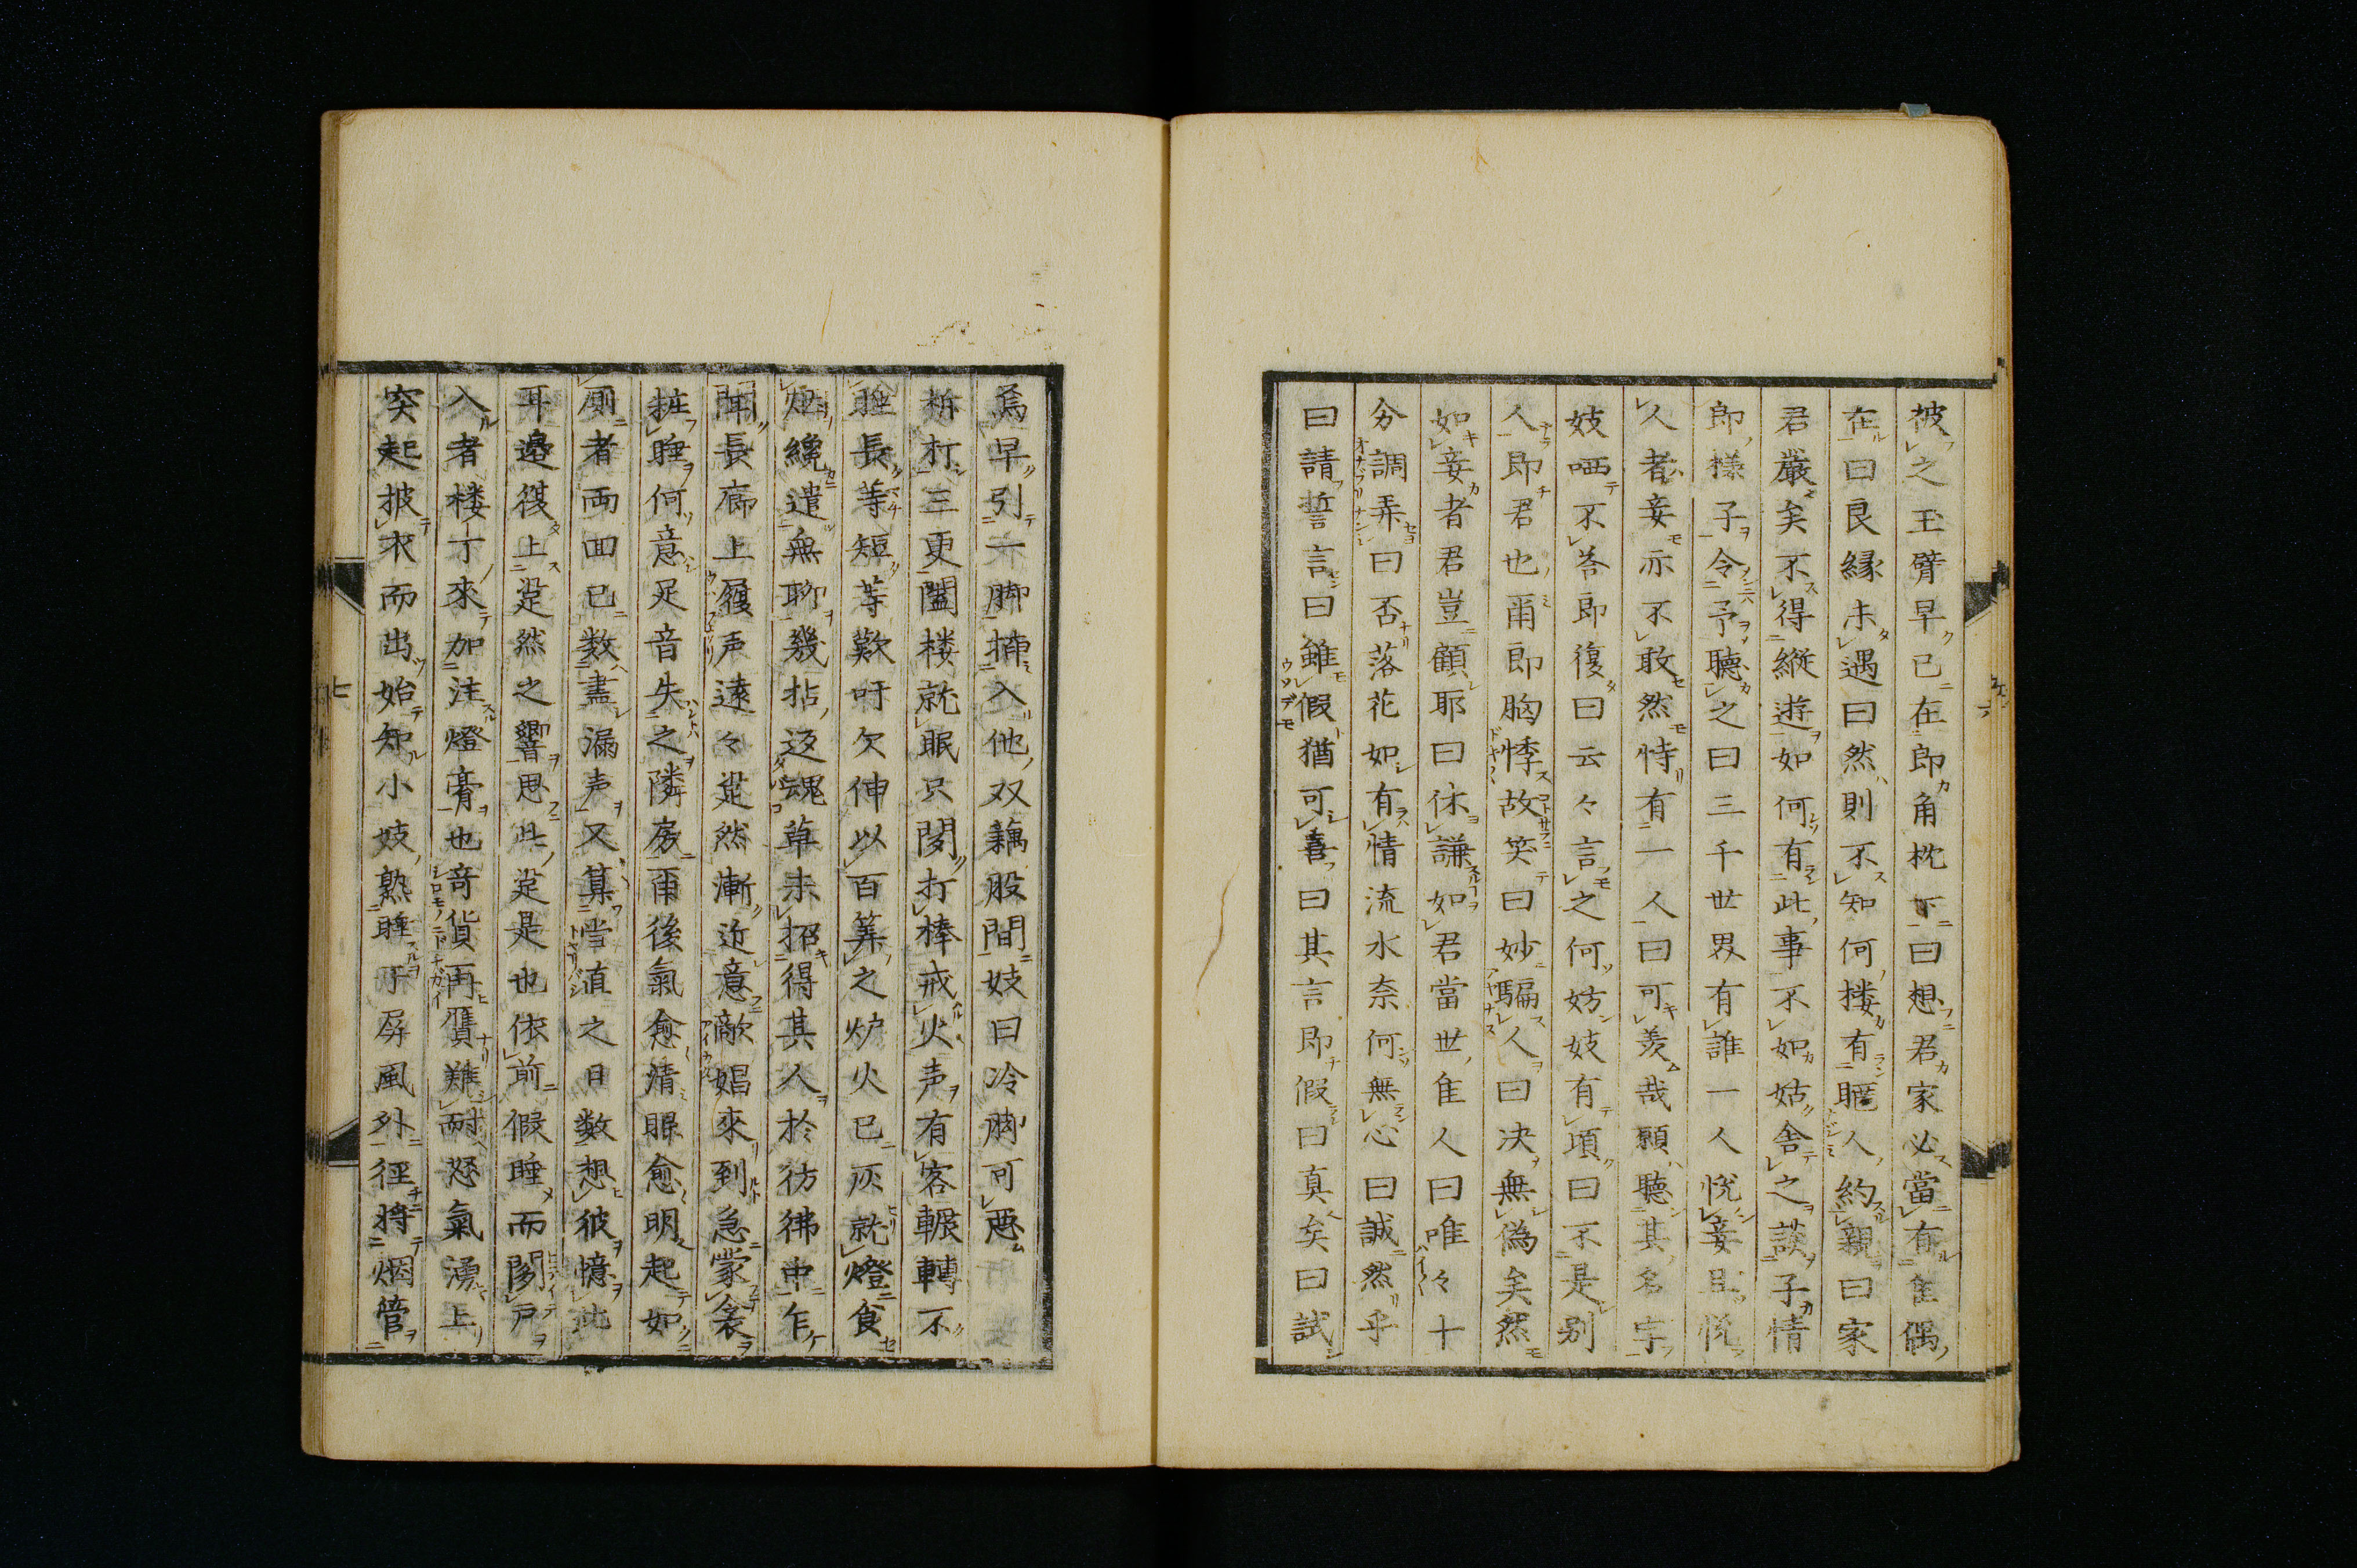 披之玉臂早已在郎角枕下曰想君家必當有隹偶
在曰良縁未遇曰然則不知何楼有暱人約親曰家
君嚴矣不得縦遊如何有此事不如姑舎之談子情
郎様子令予聴之曰三千世界有誰一人悦妾且悦
人者妾亦不敢然恃有一人曰可羨哉願聴其名字
妓哂不答郎復曰云々言之何妨妓有頃曰不是别
人即君也甬郎胸悸故笑曰妙騙人曰决無偽矣然
如妾者君豈顧耶曰休謙如君當世隹人曰唯々十
分調弄曰否落花如有情流水奈何無心曰誠然乎
曰請誓言曰雖假猶可喜曰其言即假曰真矣曰試
焉早引一脚揷入他双藕股間妓曰冷脚可悪
柝打三更闔楼就眠只聞打棒戒火声有客輾轉不
睡長等短等歎吁欠伸以百筭之炉火已灰就燈食
烟纔遣無聊幾拈返魂草未招得其人於彷彿中乍
聞長廊上履声遠々跫然漸近意敵娼來到急蒙衾
粧睡何意足音失之隣房甬後氣愈清眼愈明起如
厠者両回已数盡漏声又算当直之日数想彼憶此
耳邉復上跫然之響思此跫是也依前假睡而閟戸
入者楼丁來加注燈膏也竒貨再贋難耐怒氣湧上
突起披衣而出始知小妓熟睡于屏風外徑将烟管
七